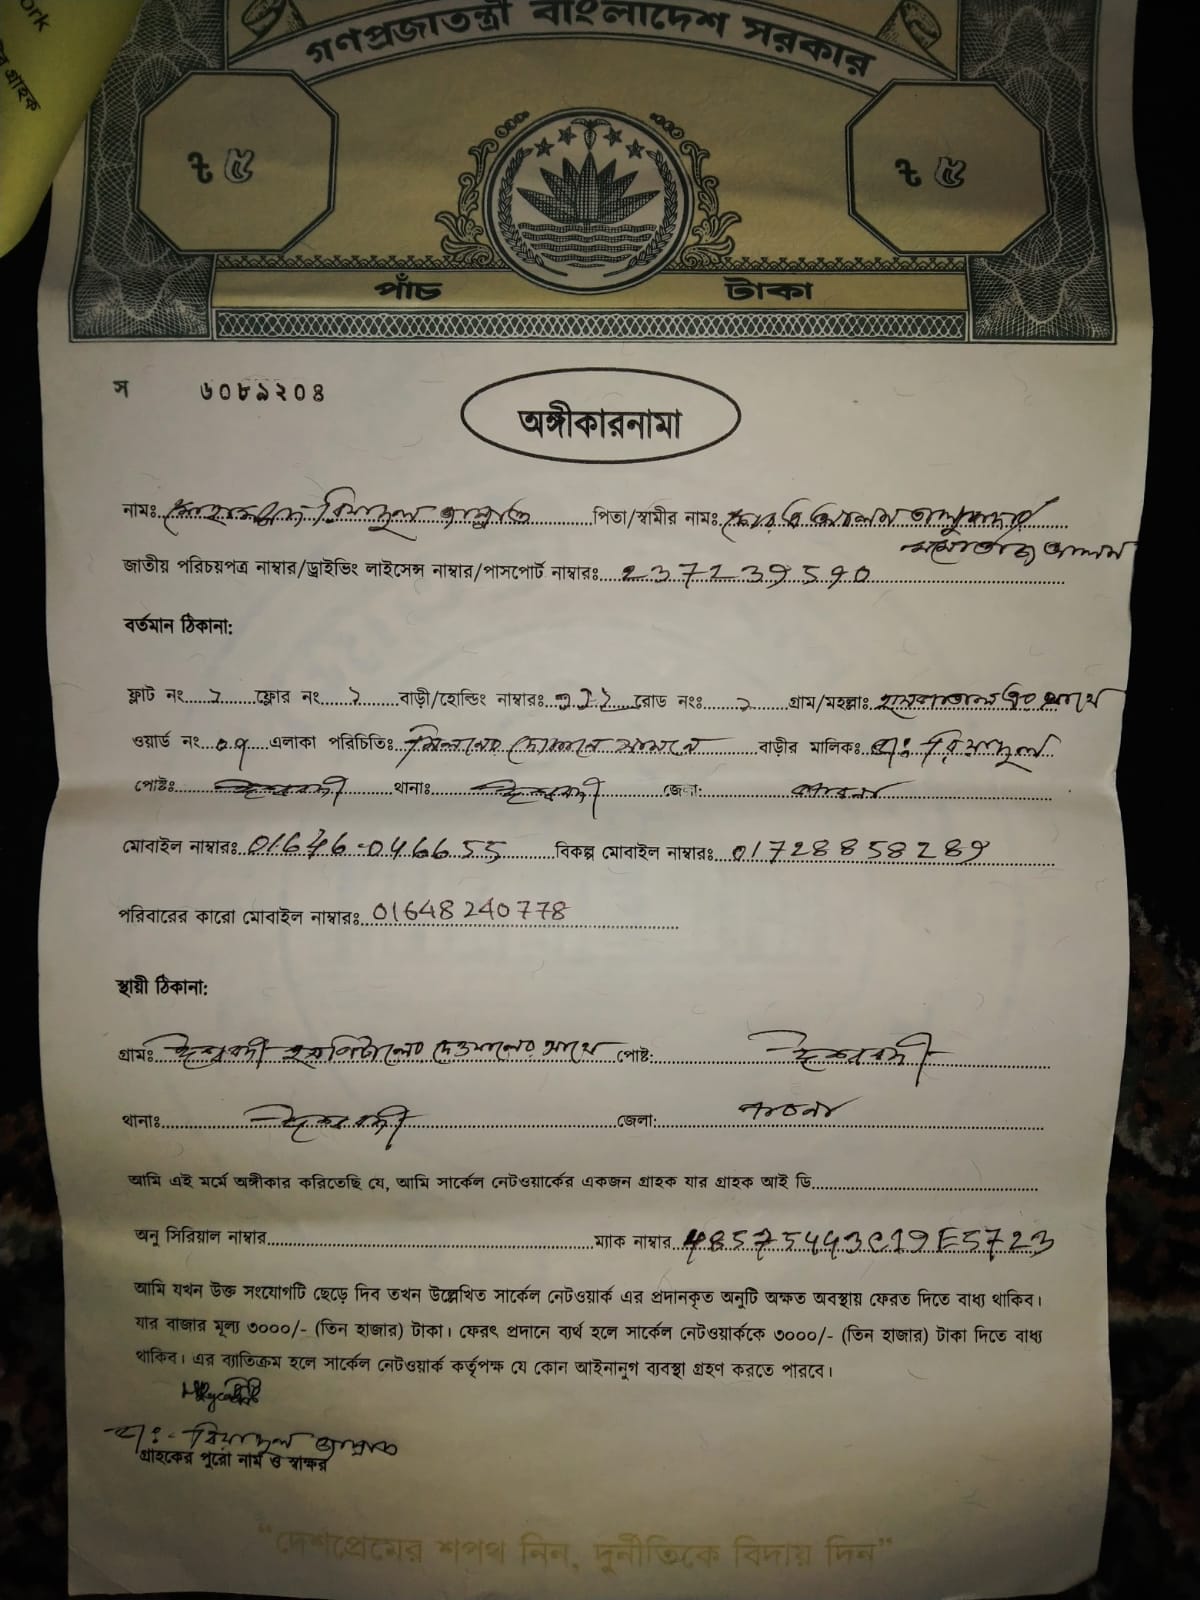 গণপ্রজাতন্ত্রী বাংলাদেশ সরকার
৳ ৫ ৳ ৫
পাঁচ টাকা
স ৬০৮৯২০৪
অঙ্গীকারনামা
নামঃ মোহাম্মদ রিয়াদুল পিতা/স্বামীর নামঃ
জাতীয় পরিচয়পত্র নাম্বার/ড্রাইভিং লাইসেন্স নাম্বার/পাসপোর্ট নাম্বারঃ 237239590
বর্তমান ঠিকানা:
ফ্লাট নং ১ ফ্লোর নং ১ বাড়ী/হোল্ডিং নাম্বারঃ রোড নংঃ ১ গ্রাম/মহল্লাঃ
ওয়ার্ড নং ০৭ এলাকা পরিচিতিঃ বাড়ীর মালিকঃ মোঃ রিয়াদুল
পোষ্টঃ ঈশ্বরদী থানাঃ ঈশ্বরদী জেলা: পাবনা
মোবাইল নাম্বারঃ 01646-046655 বিকল্প মোবাইল নাম্বারঃ 01728858289
পরিবারের কারো মোবাইল নাম্বারঃ 01648240778
স্থায়ী ঠিকানা:
গ্রামঃ ঈশ্বরদী হসপিটালের দেওয়ালের সাথে পোষ্ট: ঈশ্বরদী
থানাঃ ঈশ্বরদী জেলা: পাবনা
আমি এই মর্মে অঙ্গীকার করিতেছি যে, আমি সার্কেল নেটওয়ার্কের একজন গ্রাহক যার গ্রাহক আই ডি
অনু সিরিয়াল নাম্বার ম্যাক নাম্বার 48575443C19E5723
আমি যখন উক্ত সংযোগটি ছেড়ে দিব তখন উল্লেখিত সার্কেল নেটওয়ার্ক এর প্রদানকৃত অনুটি অক্ষত অবস্থায় ফেরত দিতে বাধ্য থাকিব।
যার বাজার মূল্য ৩০০০/- (তিন হাজার) টাকা। ফেরৎ প্রদানে ব্যর্থ হলে সার্কেল নেটওয়ার্ককে ৩০০০/- (তিন হাজার) টাকা দিতে বাধ্য
থাকিব। এর ব্যতিক্রম হলে সার্কেল নেটওয়ার্ক কর্তৃপক্ষ যে কোন আইনানুগ ব্যবস্থা গ্রহণ করতে পারবে।
মোঃ রিয়াদুল
গ্রাহকের পুরো নাম ও স্বাক্ষর
"দেশপ্রেমের শপথ নিন, দুর্নীতিকে বিদায় দিন"